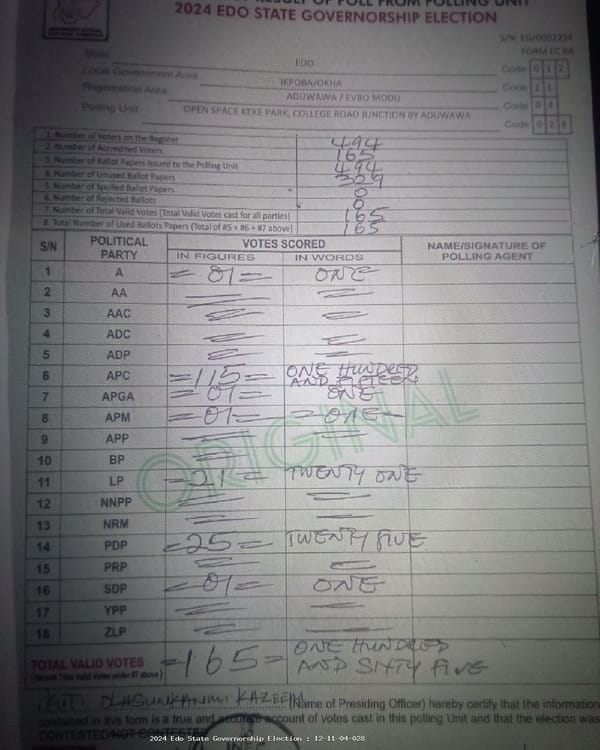 2024 EDO STATE GOVERNORSHIP ELECTION
S/N: EG/0002234
FORM EC 8A
State EDO Code 0 1 2
Local Government Area IKPOBA/OKHA Code 1 1
Registration Area ADUWAWA / EVBO MODU Code 0 4
Polling Unit OPEN SPACE KEKE PARK, COLLEGE ROAD JUNCTION BY ADUWAWA Code 0 2 8
1. Number of Voters on the Register 494
2. Number of Accredited Voters 165
3. Number of Ballot Papers Issued to the Polling Unit 494
4. Number of Unused Ballot Papers 329
5. Number of Spoiled Ballot Papers 0
6. Number of Rejected Ballots 0
7. Number of Total Valid Votes (Total Valid Votes cast for all parties) 165
8. Total Number of Used Ballots Papers (Total of #5 + #6 + #7 above) 165
S/N POLITICAL PARTY VOTES SCORED NAME/SIGNATURE OF POLLING AGENT
IN FIGURES IN WORDS
1 A = 01 = ONE
2 AA
3 AAC
4 ADC
5 ADP
6 APC =115= ONE HUNDRED AND FIFTEEN
7 APGA = 01 = ONE
8 APM = 01 = = ONE -
9 APP
10 BP
11 LP - 21 = TWENTY ONE
12 NNPP
13 NRM
14 PDP =25= TWENTY FIVE
15 PRP
16 SDP = 01 = ONE
17 YPP
18 ZLP
ORIGINAL
TOTAL VALID VOTES =165= ONE HUNDRED AND SIXTY FIVE
OLASUNKANMI KAZEEM (Name of Presiding Officer) hereby certify that the information
contained in this form is a true and accurate account of votes cast in this polling Unit and that the election was
CONTESTED/NOT CONTESTED
INEC
2024 Edo State Governorship Election : 12-11-04-028